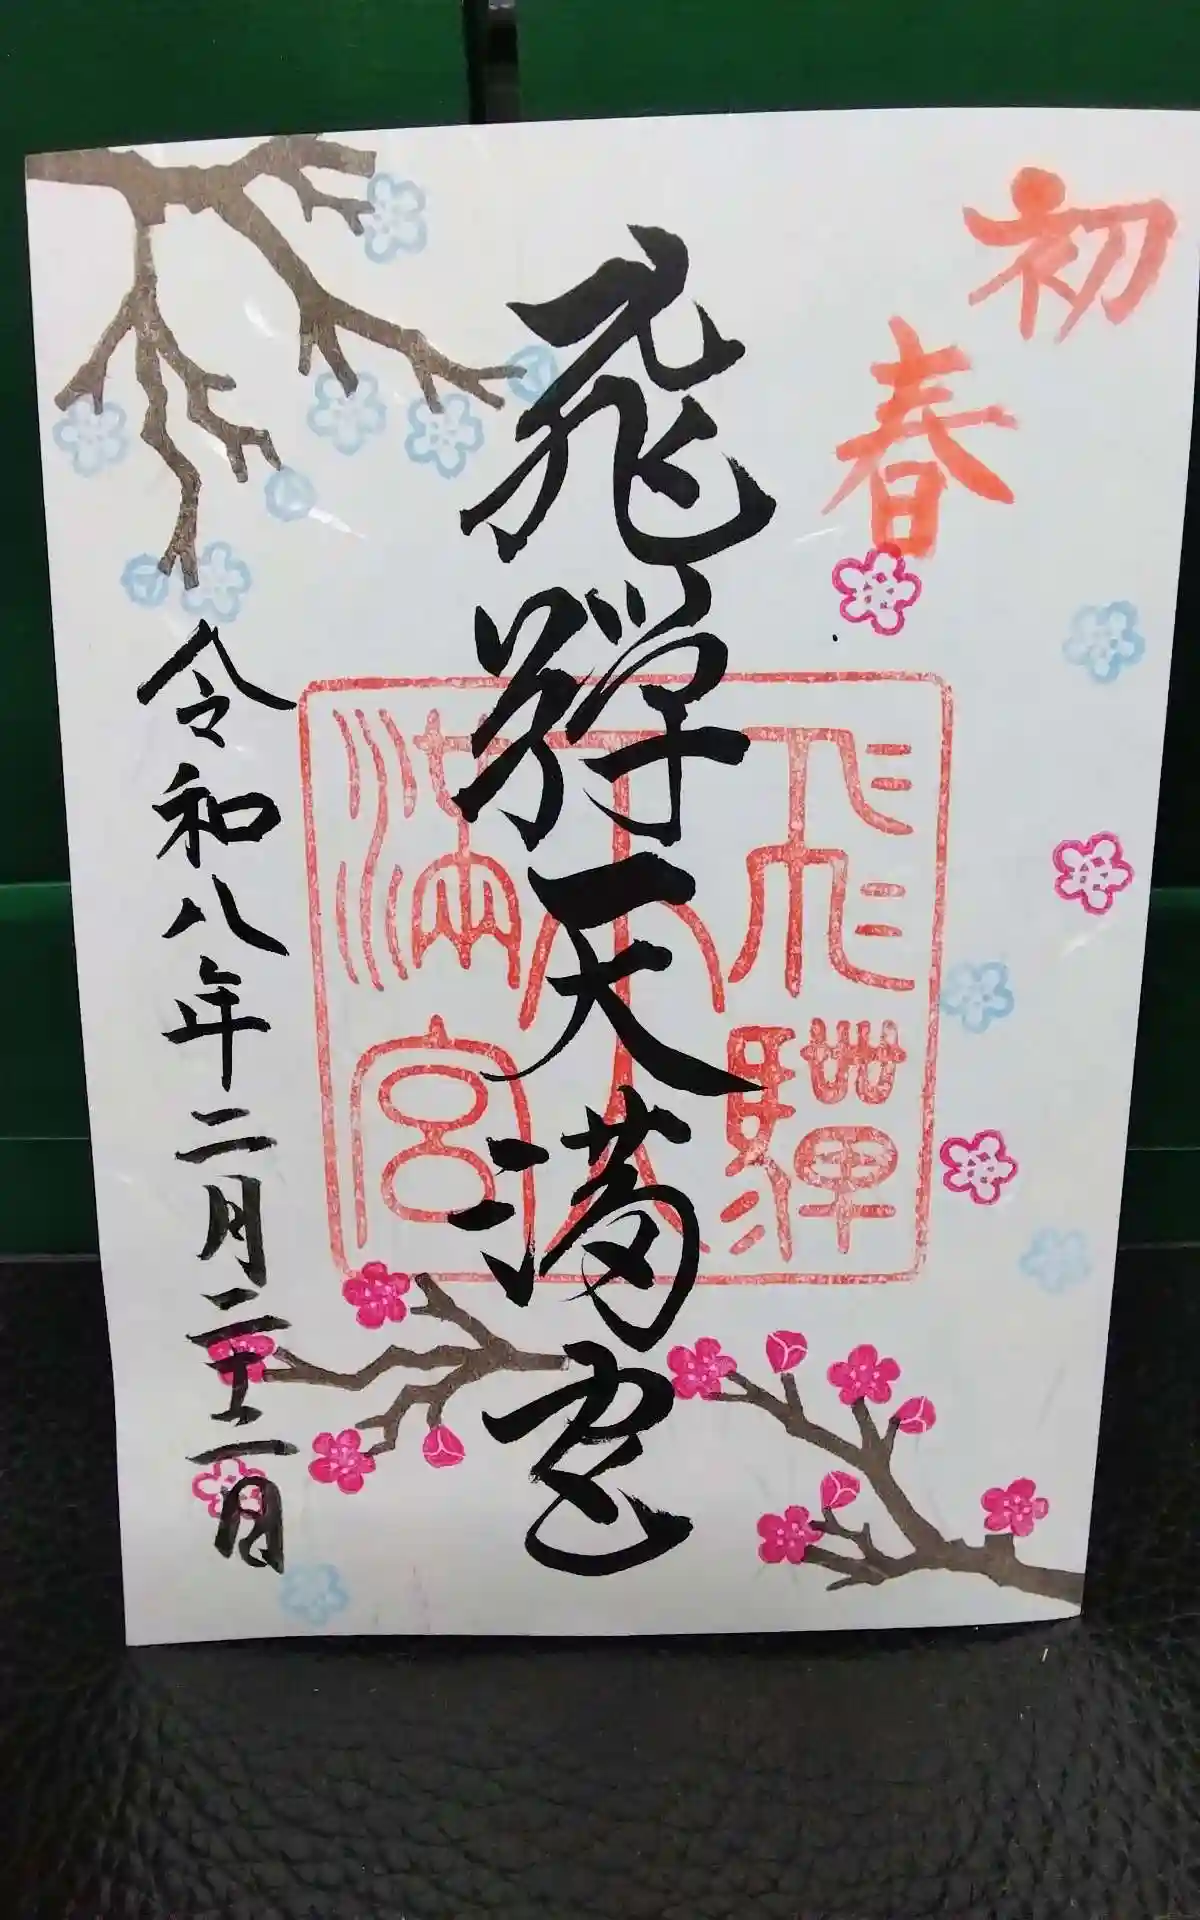 初春
飛騨天満宮
飛驒天満宮
令和八年二月二十二日